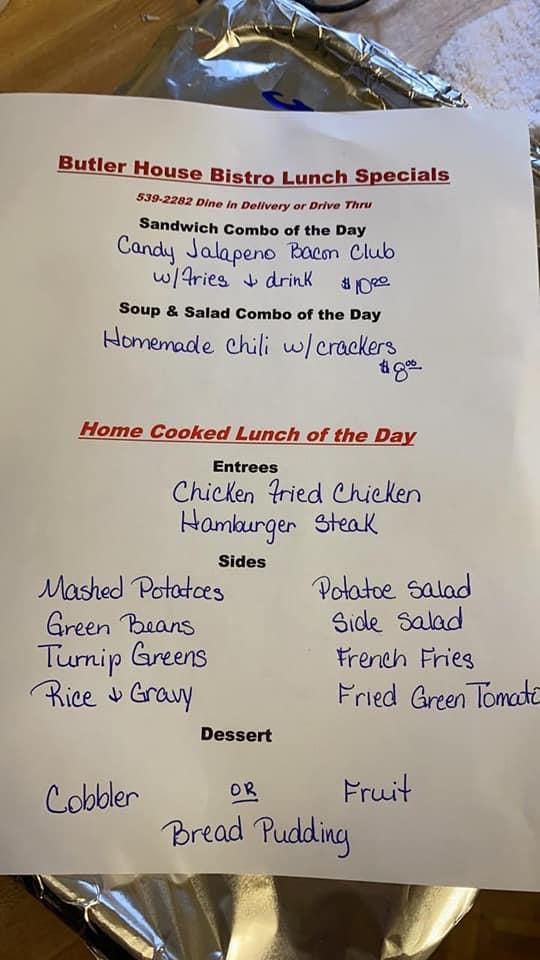 Butler House Bistro Lunch Specials
539-2282 Dine in Delivery or Drive Thru
Sandwich Combo of the Day
Candy Jalapeno Bacon Club
w/ Fries & drink $10.00
Soup & Salad Combo of the Day
Homemade Chili w/crackers
$8.00
Home Cooked Lunch of the Day
Entrees
Chicken Fried Chicken
Hamburger Steak
Sides
Mashed Potatoes Potatoe Salad
Green Beans Side Salad
Turnip Greens French Fries
Rice & Gravy Fried Green Tomato
Dessert
Cobbler OR Fruit
Bread Pudding